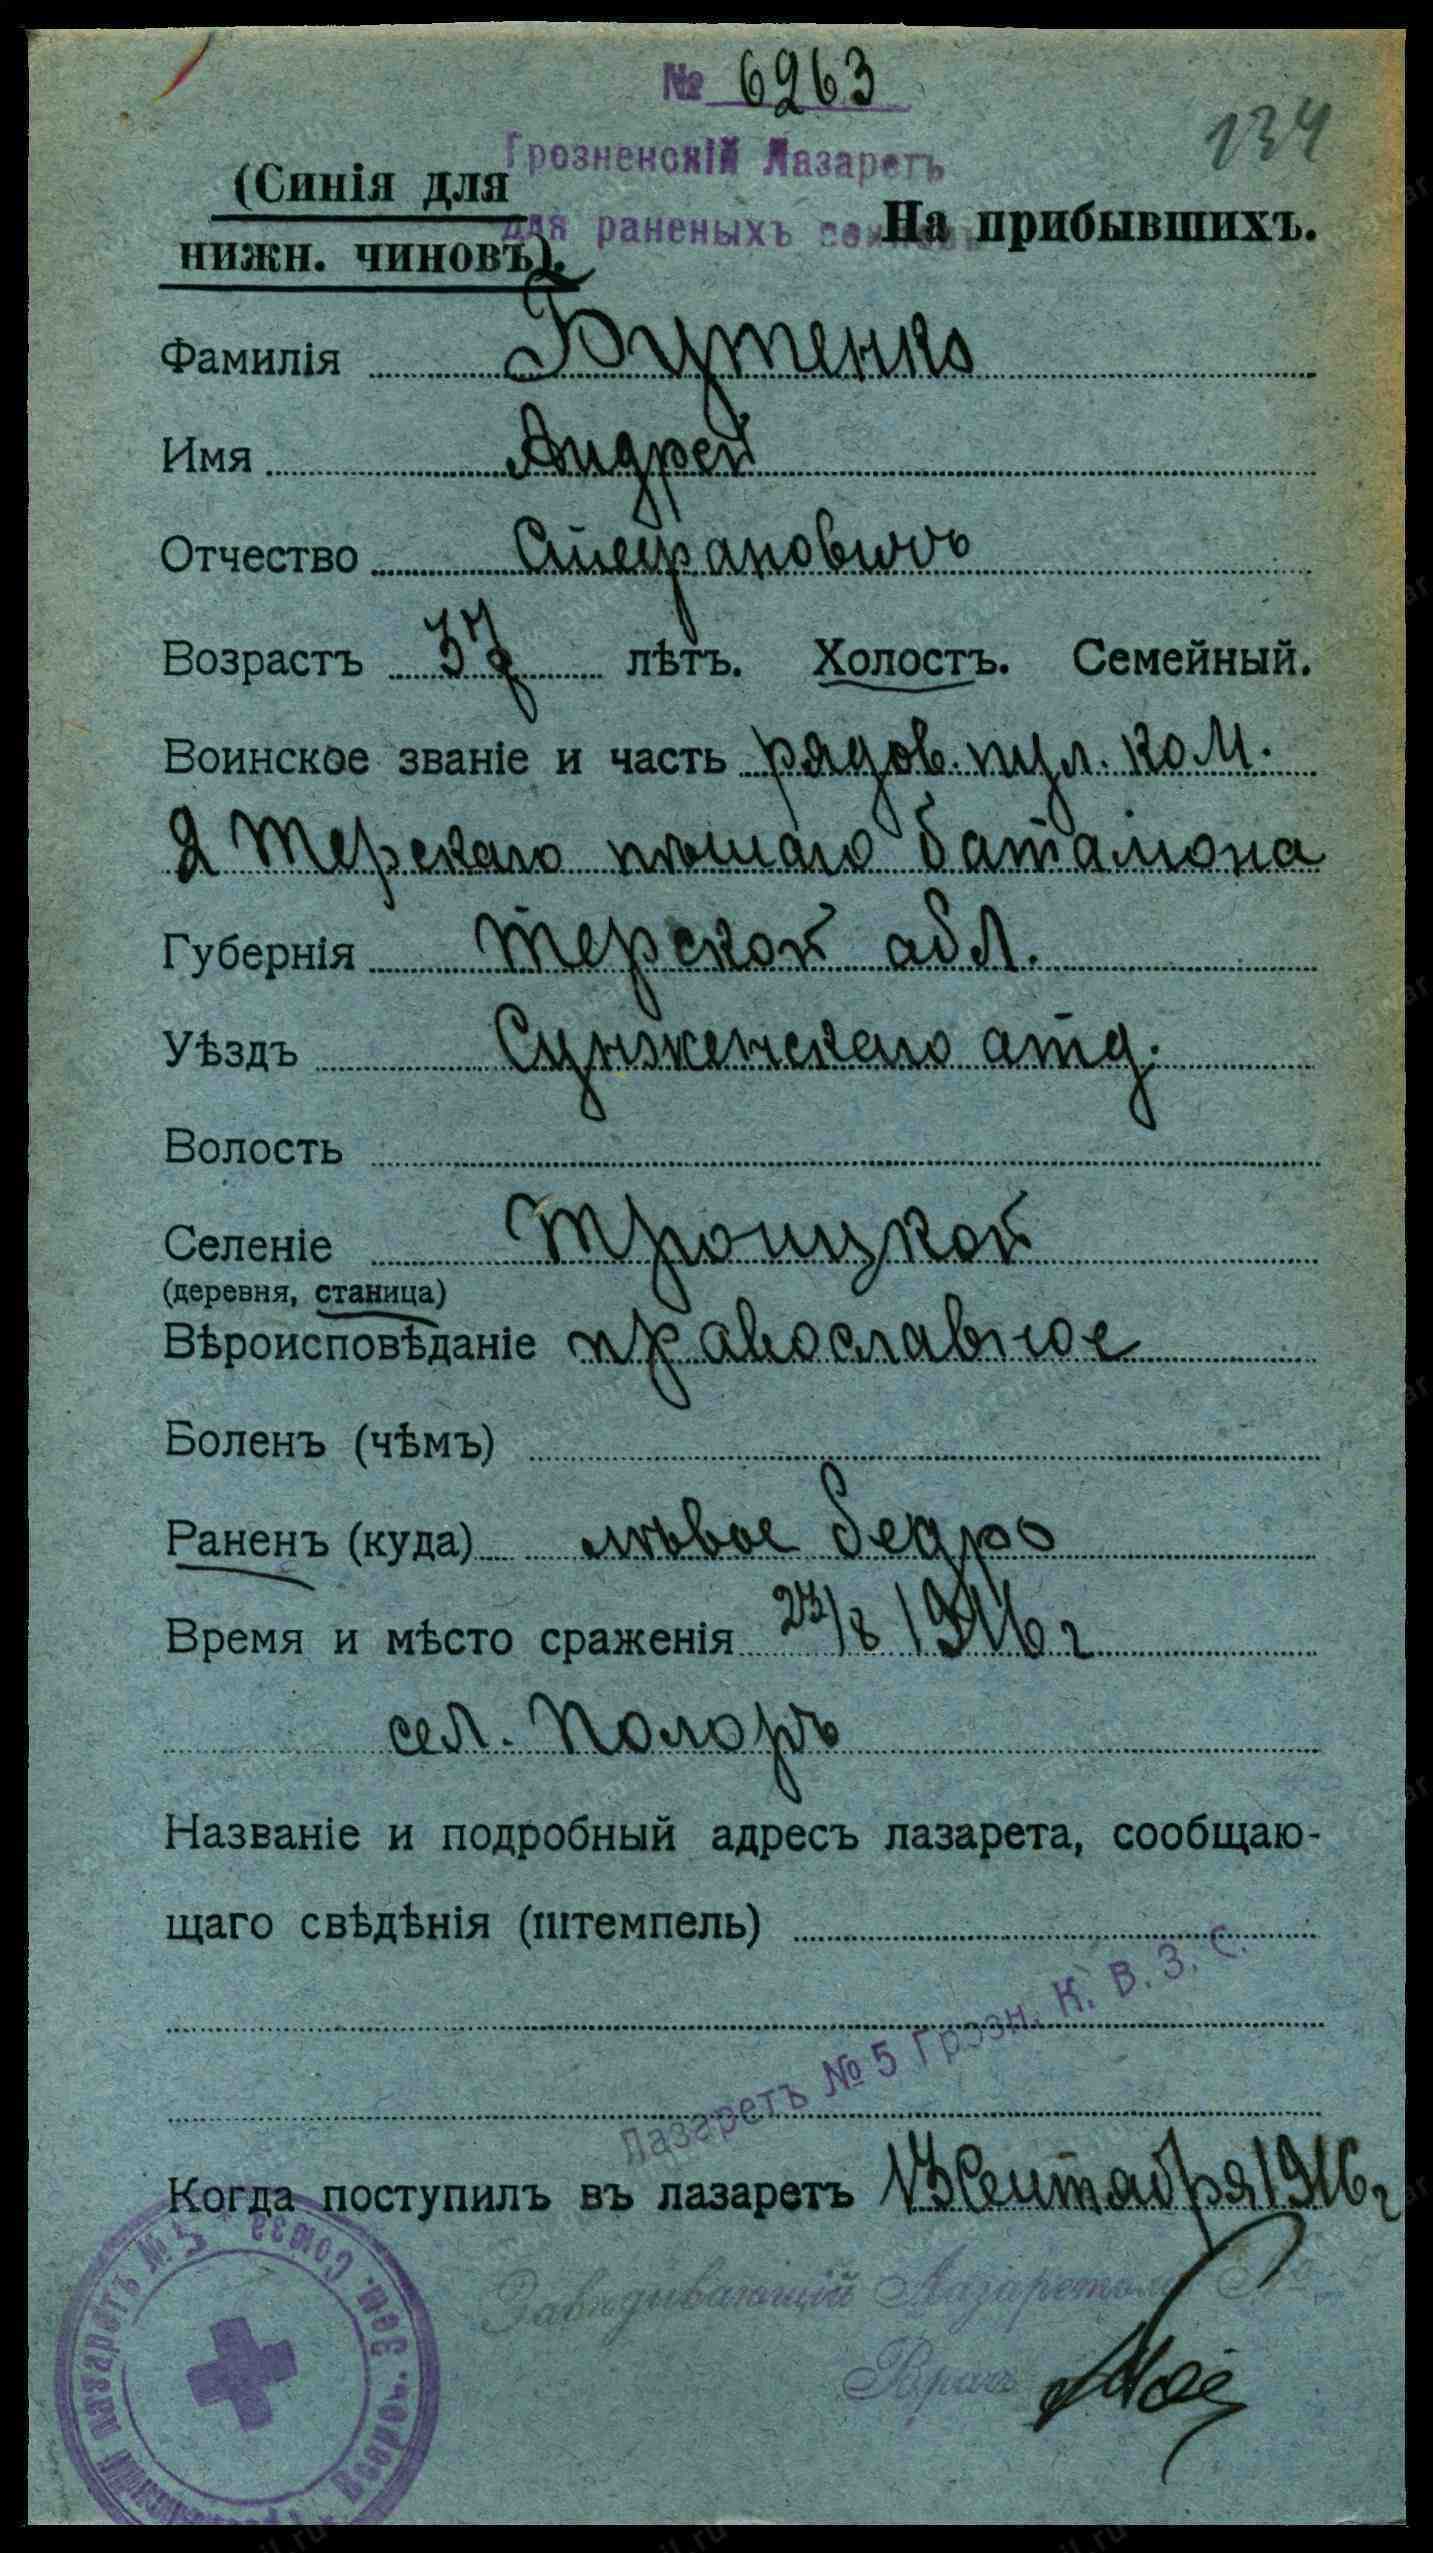 № 6263
134
Грозненскій Лазаретъ
для раненыхъ
(Синія для
нижн. чиновъ).
На прибывшихъ.
Фамилія Бутенко
Имя Андрей
Отчество Стефановичъ
Возрастъ 37 лѣтъ. Холостъ. Семейный.
Воинское званіе и часть рядов. пул. ком.
2 Терскаго пѣшаго баталіона
Губернія Терской обл.
Уѣздъ Сунженскаго отд.
Волость
Селеніе Троицкой
(деревня, станица)
Вѣроисповѣданіе православное
Боленъ (чѣмъ)
Раненъ (куда) лѣвое бедро
Время и мѣсто сраженія 23/8 1916 г
сел. Полоръ
Названіе и подробный адресъ лазарета, сообщаю-
щаго свѣдѣнія (штемпель)
Лазаретъ № 5 Грозн. К. В. З. С.
Когда поступилъ въ лазаретъ 13 Сентября 1916 г
Завѣдывающій Лазаретомъ № 5
Врачъ
лазаретъ № 5 Всерос. Зем. Союза